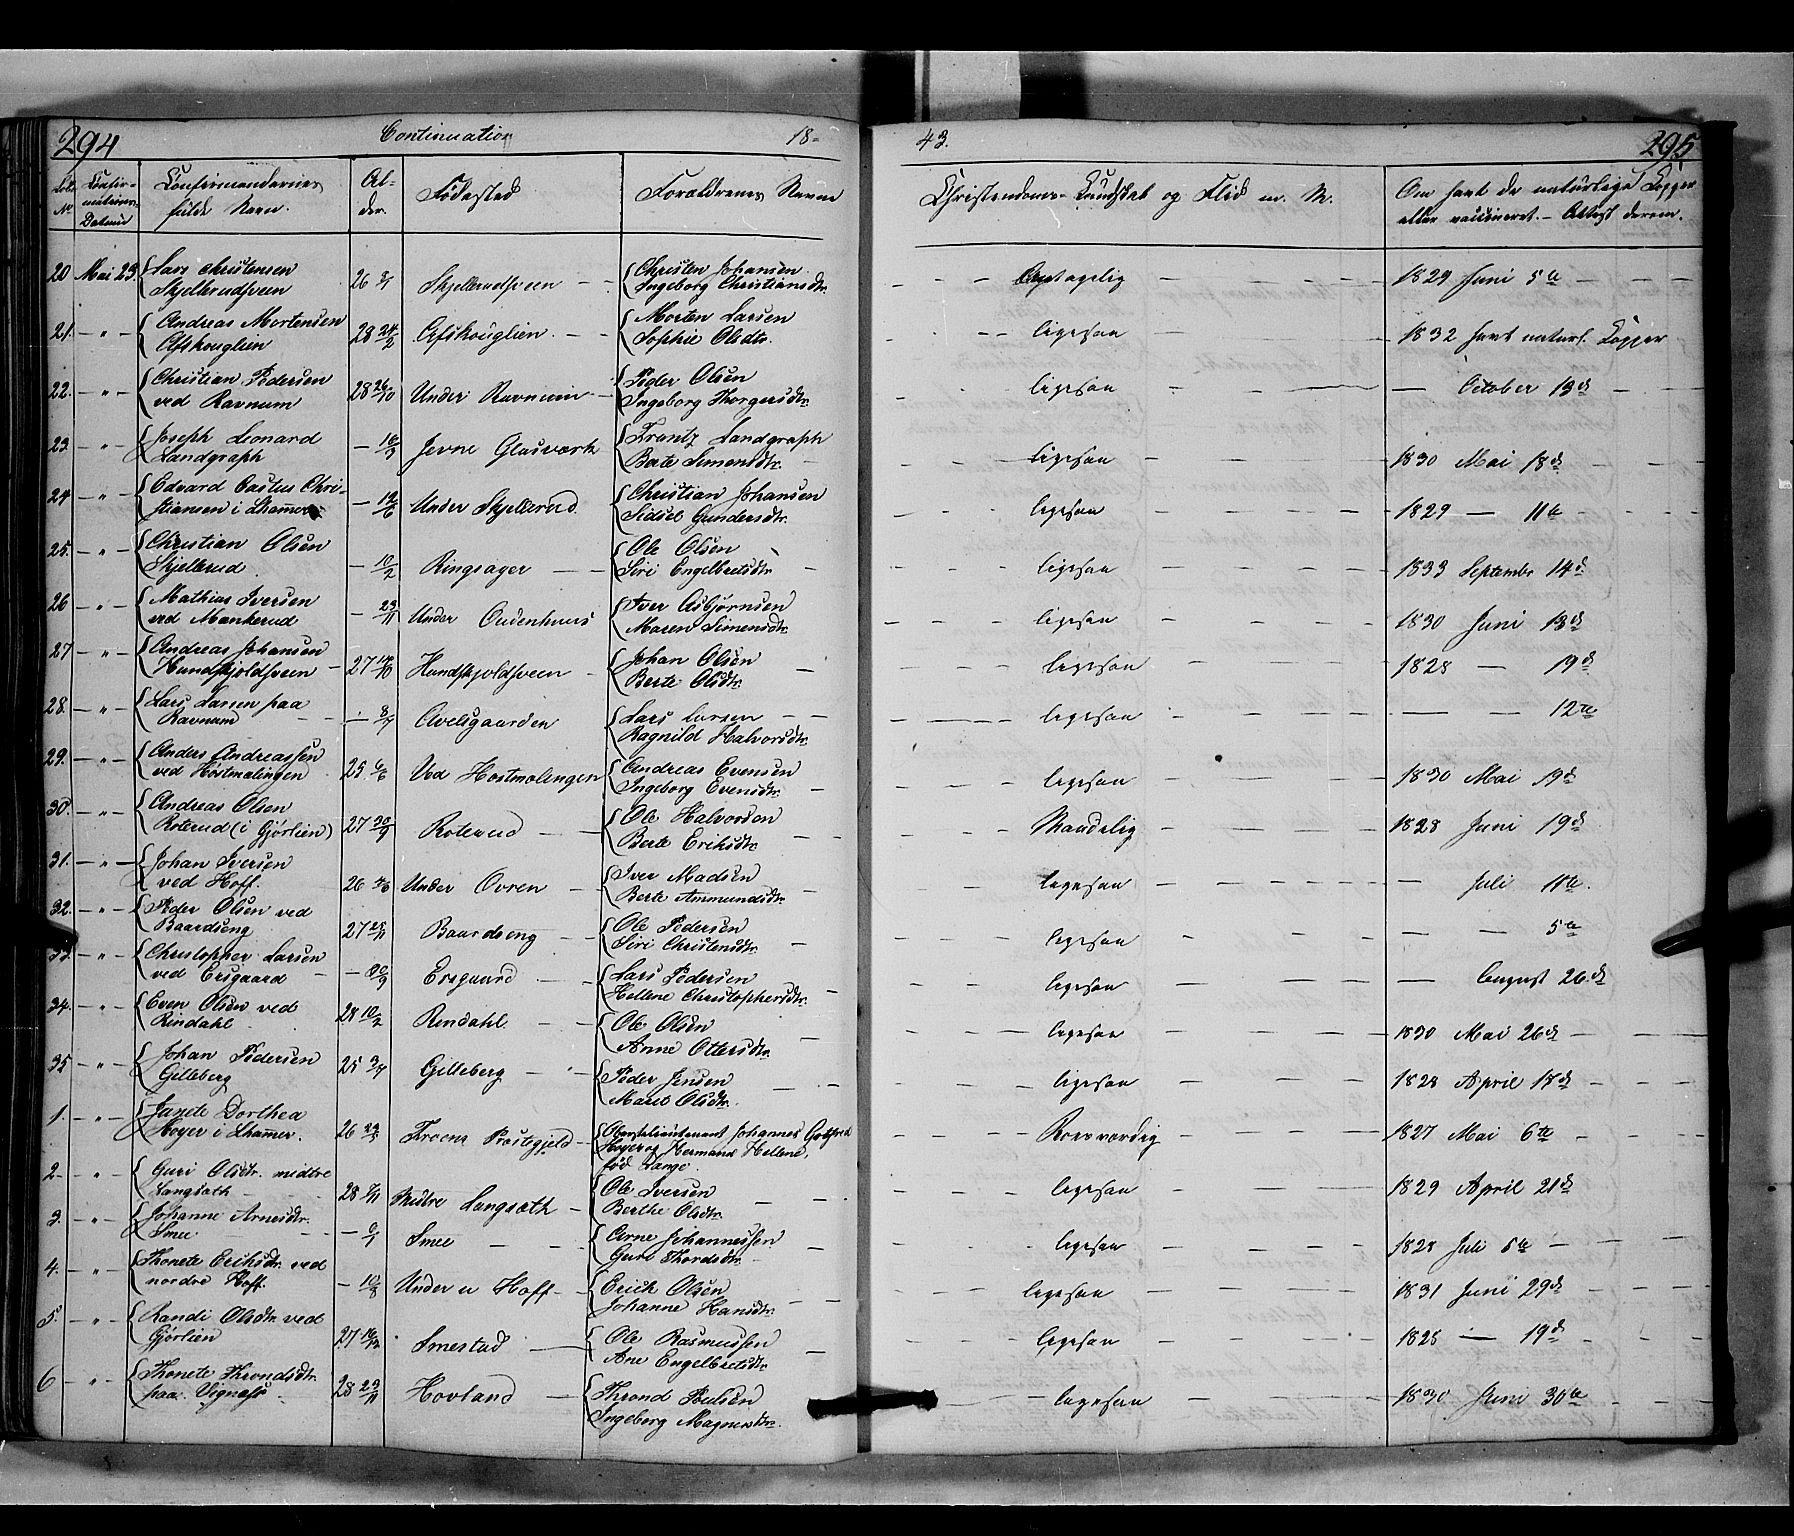 294 Continuation 18-
43. 295
Løb. No Confirmations Datum Confirmandernes fulde Navn. Alder Fødested Forældrenes Navne
Christendoms-Kundskab og Flid m. M. Om havt de naturlige Kopper eller vaccineret. - Attest derom.
20 Mai 23. Lars Christensen Skjellerudsveen 26 Skjellerudsveen Christen Johansen Ingeborg Christiansdtr. Antagelig 1829 Juni 5te
21. - " - Andreas Mortensen Afskouglien 28 24/2 Afskouglien Morten Larsen Sophie Olsdtr. ligesaa 1832 havt naturl. Kopper
22. - " - Christian Pedersen ved Ravnum 28 26/10 Under Ravnum Peder Olsen Ingeborg Thorgersdtr. ligesaa - October 13d
23 - " - Joseph Leonard Landgraph - Jevne Glasværk Frantz Landgraph Berte Simensdtr. ligesaa 1830 Mai 18d
24 - " - Edvard Castus Christiansen i Lhammer - Under Skjellerud Christian Johansen Sidsel Gundersdtr. ligesaa 1829 - 11te
25. - " - Christian Olsen Skjellerud - 10/2 Ringsager Ole Olsen Siri Engelbretsdtr. ligesaa 1833 Septembr 14d
26 - " - Mathias Iversen ved Mankerud - 23/11 Under Oudenhuus Iver Asbjørnsen Maren Simensdtr. ligesaa 1830 Juni 13d
27 - " - Andreas Johansen Hundskjoldsveen 27 14/10 Hundskjoldsveen Johan Olsen Berte Olsdtr. ligesaa 1828 - 19d
28. - " - Lars Larsen paa Ravnum - 8/7 Avelsgaarden Lars Larsen Ragnild Halvorsdtr. ligesaa - - 12te
29. - " - Anders Andreassen ved Høstmælingen 25 6/6 Ved Hostmælingen Andreas Evensen Ingeborg Evensdtr. ligesaa 1830 Mai 19d
30. - " - Andreas Olsen Roterud (i Gjørlien) 27 30/9 Roterud Ole Halvorsen Berte Eriksdtr. Maadelig 1828 Juni 19d
31. - " - Johan Iversen ved Hoff. 26 Under Ovren Iver Madsen Berte Ammundsdtr. ligesaa Juli 11te.
32. - " - Peder Olsen ved Baardseng 27 Baardseng Ole Pedersen Siri Christensdtr. ligesaa - - 5te
33 - " - Christopher Larsen ved Ersgaard - 30/9 Ersgaard Lars Pedersen Hellene Christophersdtr. ligesaa - August 26d
34. - " - Even Olsen ved Rindahl 28 10/2 Rindahl Ole Olsen Anne Ottersdtr. ligesaa 1830 Mai 26d
35 - " - Johan Pedersen Gilleberg 25 3/7 Gilleberg Peder Jensen Maret Olsdtr. ligesaa 1828 April 18d
1. - " - Janete Dorthea Høyer i Lhammer. 26 Froens Præstegjeld Oberstelieutenant Johannes Gotfred Høyer og Hermana Hellene, fød Lange. Roesværdig 1827 Mai 6te
2. - " - Guri Olsdtr. midtre Langsæth 28 Midtre Langsæth Ole Iversen Berthe Olsdtr. ligesaa 1829 April 21d
3. - " - Johanne Arnesdtr. Smee - Smee Arne Johannessen Guri Thordsdtr. ligesaa 1828 Juli 5te
4. - " - Thonete Erichsdtr. ved nordre Hoff. - 10/8 Under n Hoff Erich Olsen Johanne Hansdtr. ligesaa 1831 Juni 29d
5. - " - Randi Olsdtr. ved Gjørlien 27 16/12 Smestad Ole Rasmussen Ane Engelbretsdtr. ligesaa 1828 - 19d
6 - " - Thonete Throndsdtr. paa Vignæss 28 29/11 Hovland Thrond Poulsen Ingeborg Magnusdtr. ligesaa 1830 Juni 30te